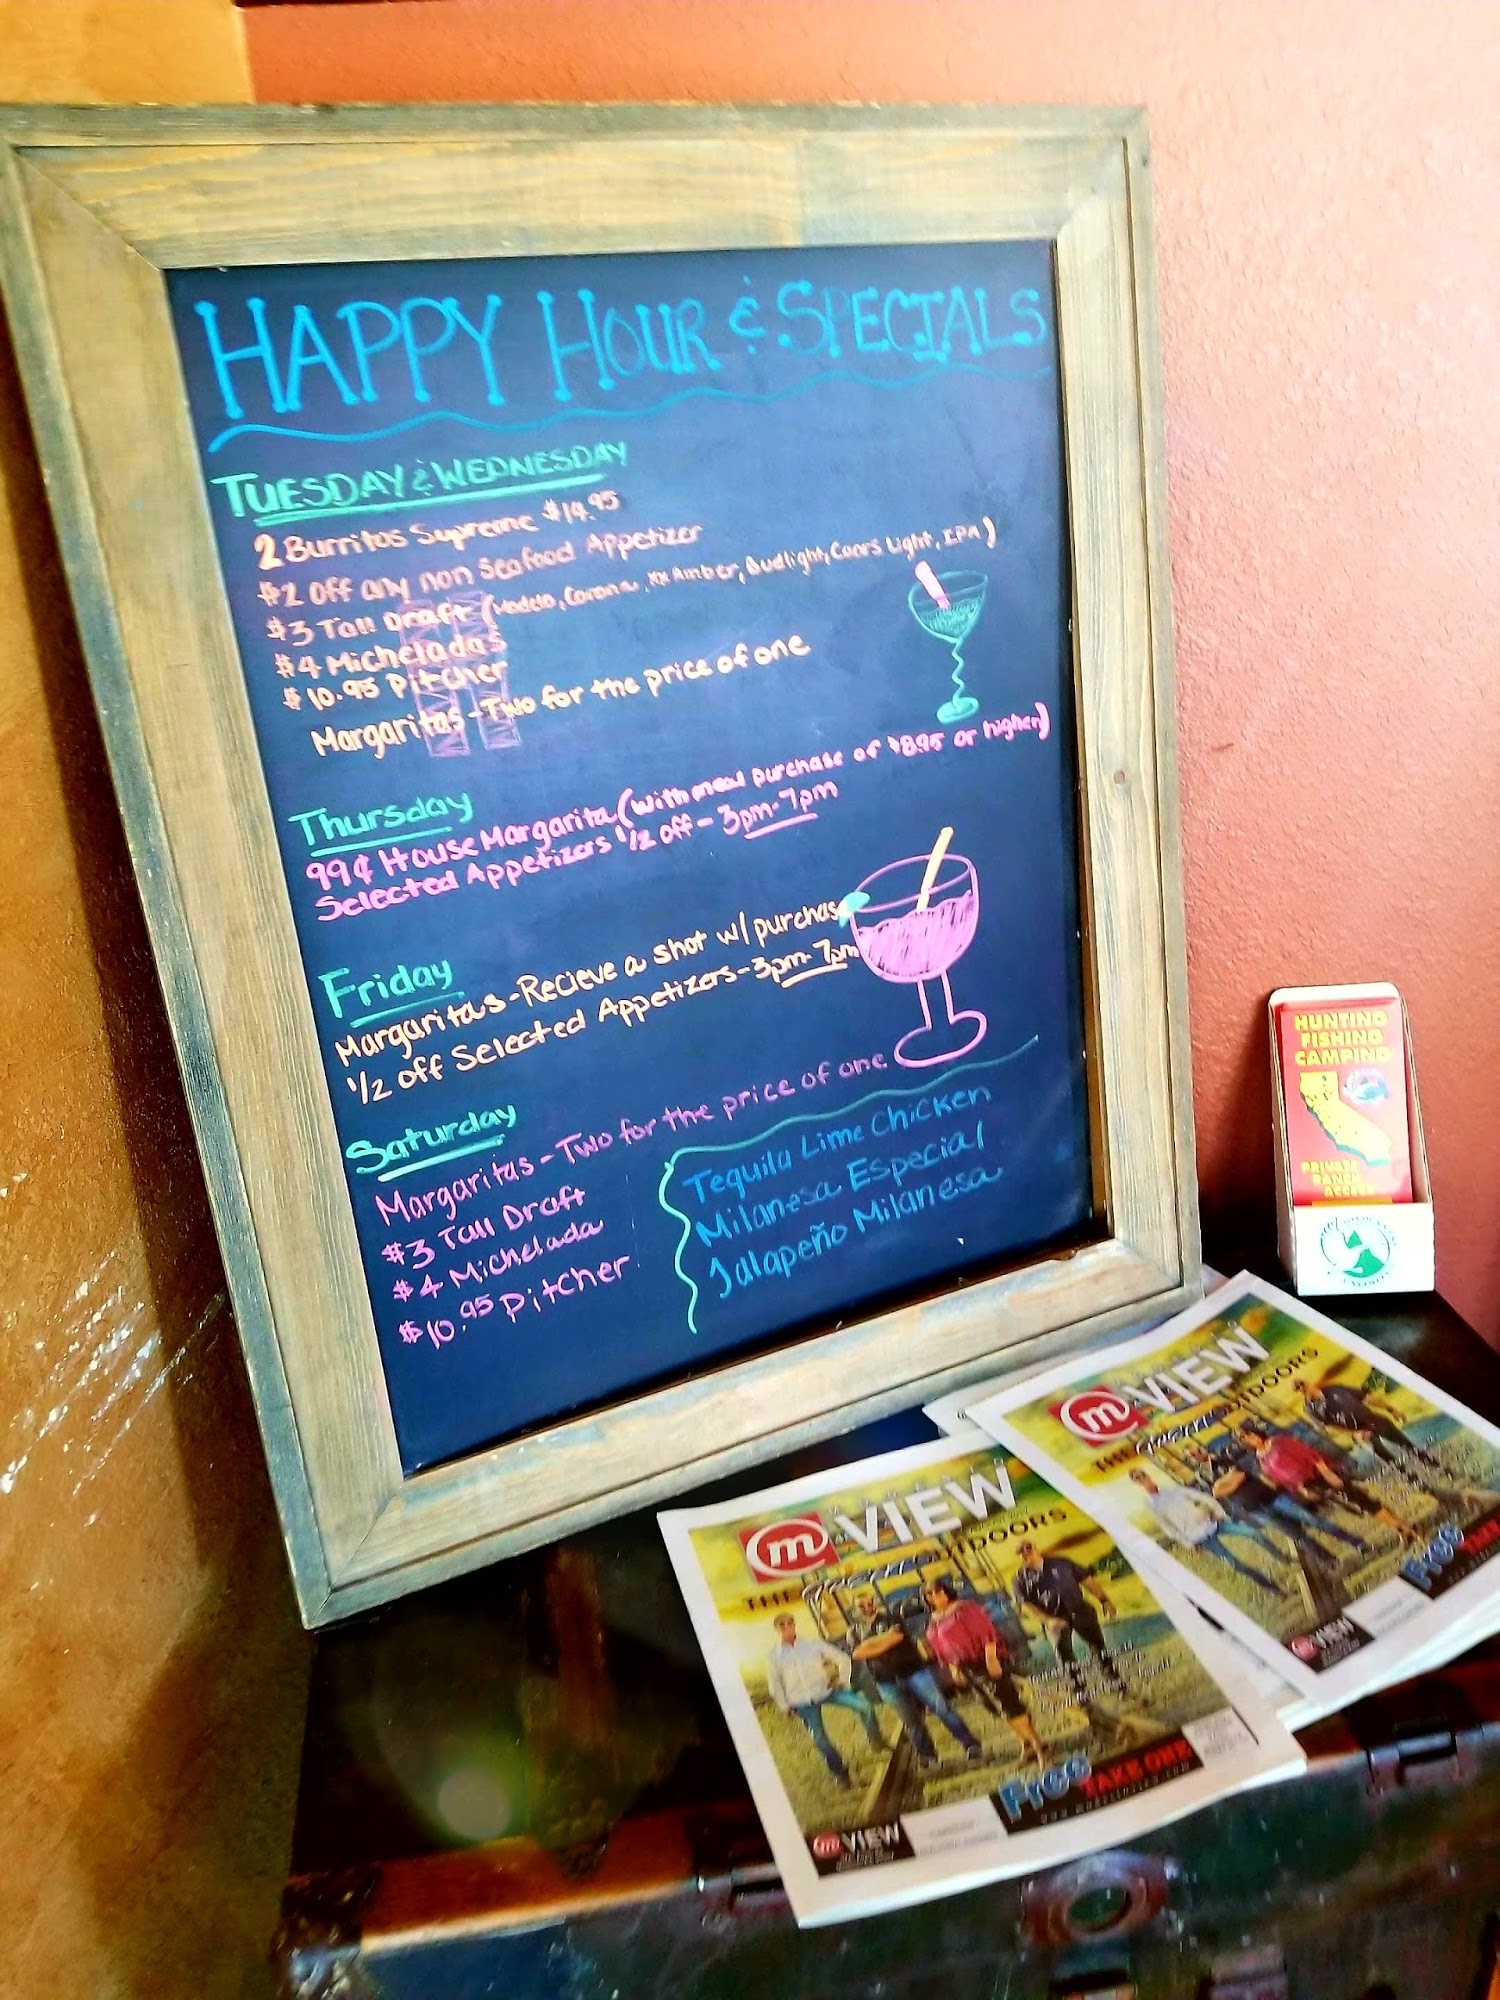 HAPPY HOUR & SPECIALS
TUESDAY & WEDNESDAY
2 Burritos Supreme $14.95
$2 off any non Seafood Appetizer
$3 Tall Draft (Modelo, Corona, XX Amber, Budlight, Coors Light, IPA)
$4 Micheladas
$10.95 Pitcher
Margaritas - Two for the price of one
Thursday
99¢ House Margarita (with meal purchase of $8.95 or higher)
Selected Appetizers 1/2 off - 3pm-7pm
Friday
Margaritas - Recieve a shot w/ purchase
1/2 off Selected Appetizers - 3pm-7pm
Saturday
Margaritas - Two for the price of one
$3 Tall Draft
$4 Michelada
$10.95 Pitcher
Tequila Lime Chicken
Milanesa Especial
Jalapeño Milanesa
HUNTING
FISHING
CAMPING
PRIVATE
RANCH
ACCESS
m VIEW
THE Great OUTDOORS
Free TAKE ONE
m VIEW
m VIEW
THE Great OUTDOORS
Free TAKE ONE
m VIEW